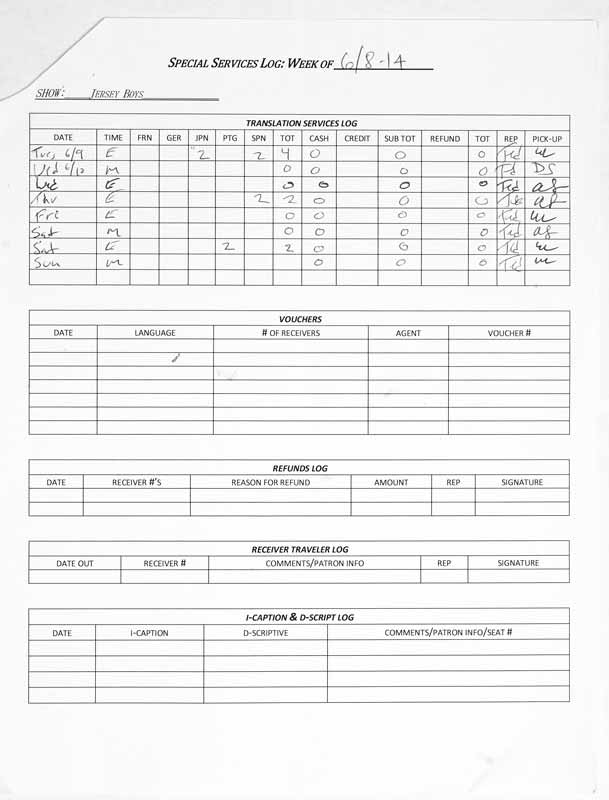 SPECIAL SERVICES LOG: WEEK OF 6/8-14
SHOW: JERSEY BOYS
TRANSLATION SERVICES LOG
DATE TIME FRN GER JPN PTG SPN TOT CASH CREDIT SUB TOT REFUND TOT REP PICK-UP
Tue, 6/9 E 2 2 4 0 0 0 Ted
Wed 6/10 M 0 0 0 0 Ted DS
Wed E 0 0 0 0 Ted
Thu E 2 2 0 0 0 Ted
Fri E 0 0 0 0 Ted
Sat M 0 0 0 0 Ted
Sat E 2 2 0 0 0 Ted
Sun M 0 0 0 Ted
VOUCHERS
DATE LANGUAGE # OF RECEIVERS AGENT VOUCHER #
REFUNDS LOG
DATE RECEIVER #'S REASON FOR REFUND AMOUNT REP SIGNATURE
RECEIVER TRAVELER LOG
DATE OUT RECEIVER # COMMENTS/PATRON INFO REP SIGNATURE
I-CAPTION & D-SCRIPT LOG
DATE I-CAPTION D-SCRIPTIVE COMMENTS/PATRON INFO/SEAT #